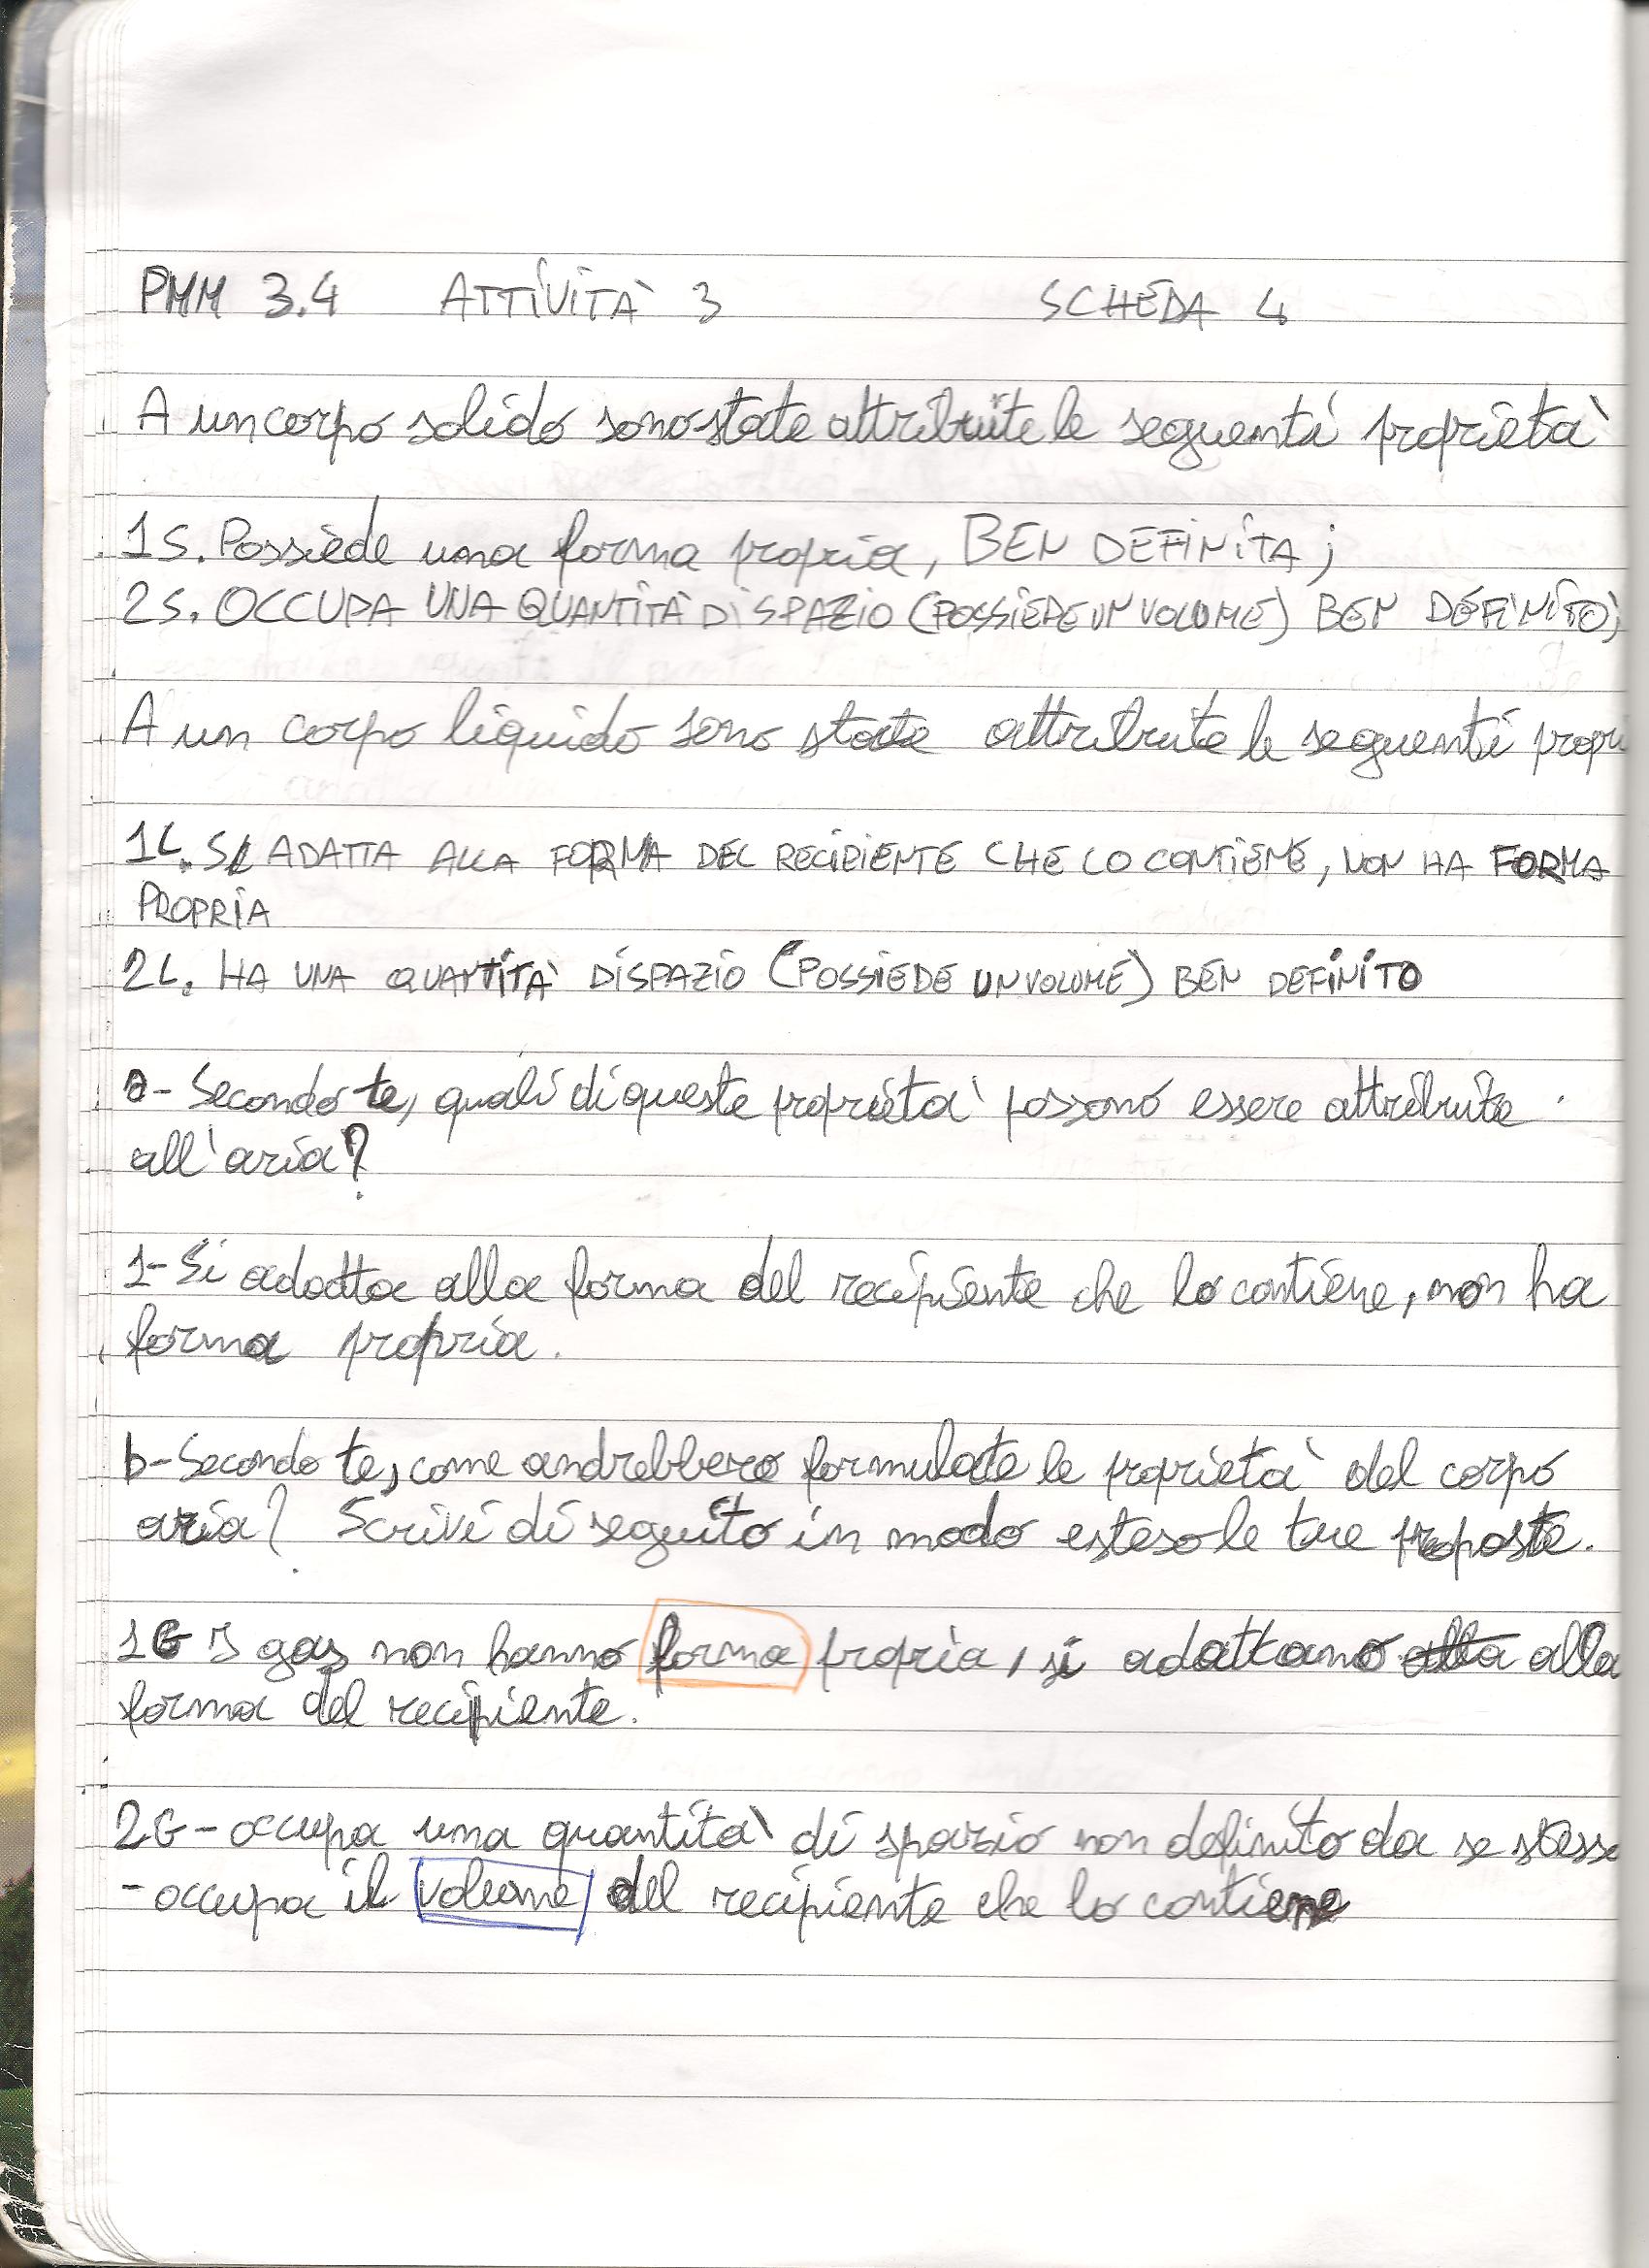 PMM 3.4 ATTIVITÀ 3 SCHEDA 4
A un corpo solido sono state attribuite le seguenti proprietà
1S. Possiede una forma propria, BEN DEFINITA;
2S. OCCUPA UNA QUANTITÀ DI SPAZIO (POSSIEDE UN VOLUME) BEN DEFINITO;
A un corpo liquido sono state attribuite le seguenti propri
1L. SI ADATTA ALLA FORMA DEL RECIPIENTE CHE LO CONTIENE, NON HA FORMA
PROPRIA
2L. HA UNA QUANTITÀ DI SPAZIO (POSSIEDE UN VOLUME) BEN DEFINITO
a- Secondo te, quali di queste proprietà possono essere attribuite
all'aria?
1- Si adatta alla forma del recipiente che lo contiene, non ha
forma propria.
b- Secondo te, come andrebbero formulate le proprietà del corpo
aria? Scrivi di seguito in modo esteso le tue proposte.
1G I gas non hanno forma propria, si adattano alla
forma del recipiente.
2G- occupa una quantità di spazio non definito da se stesso
- occupa il volume del recipiente che lo contiene